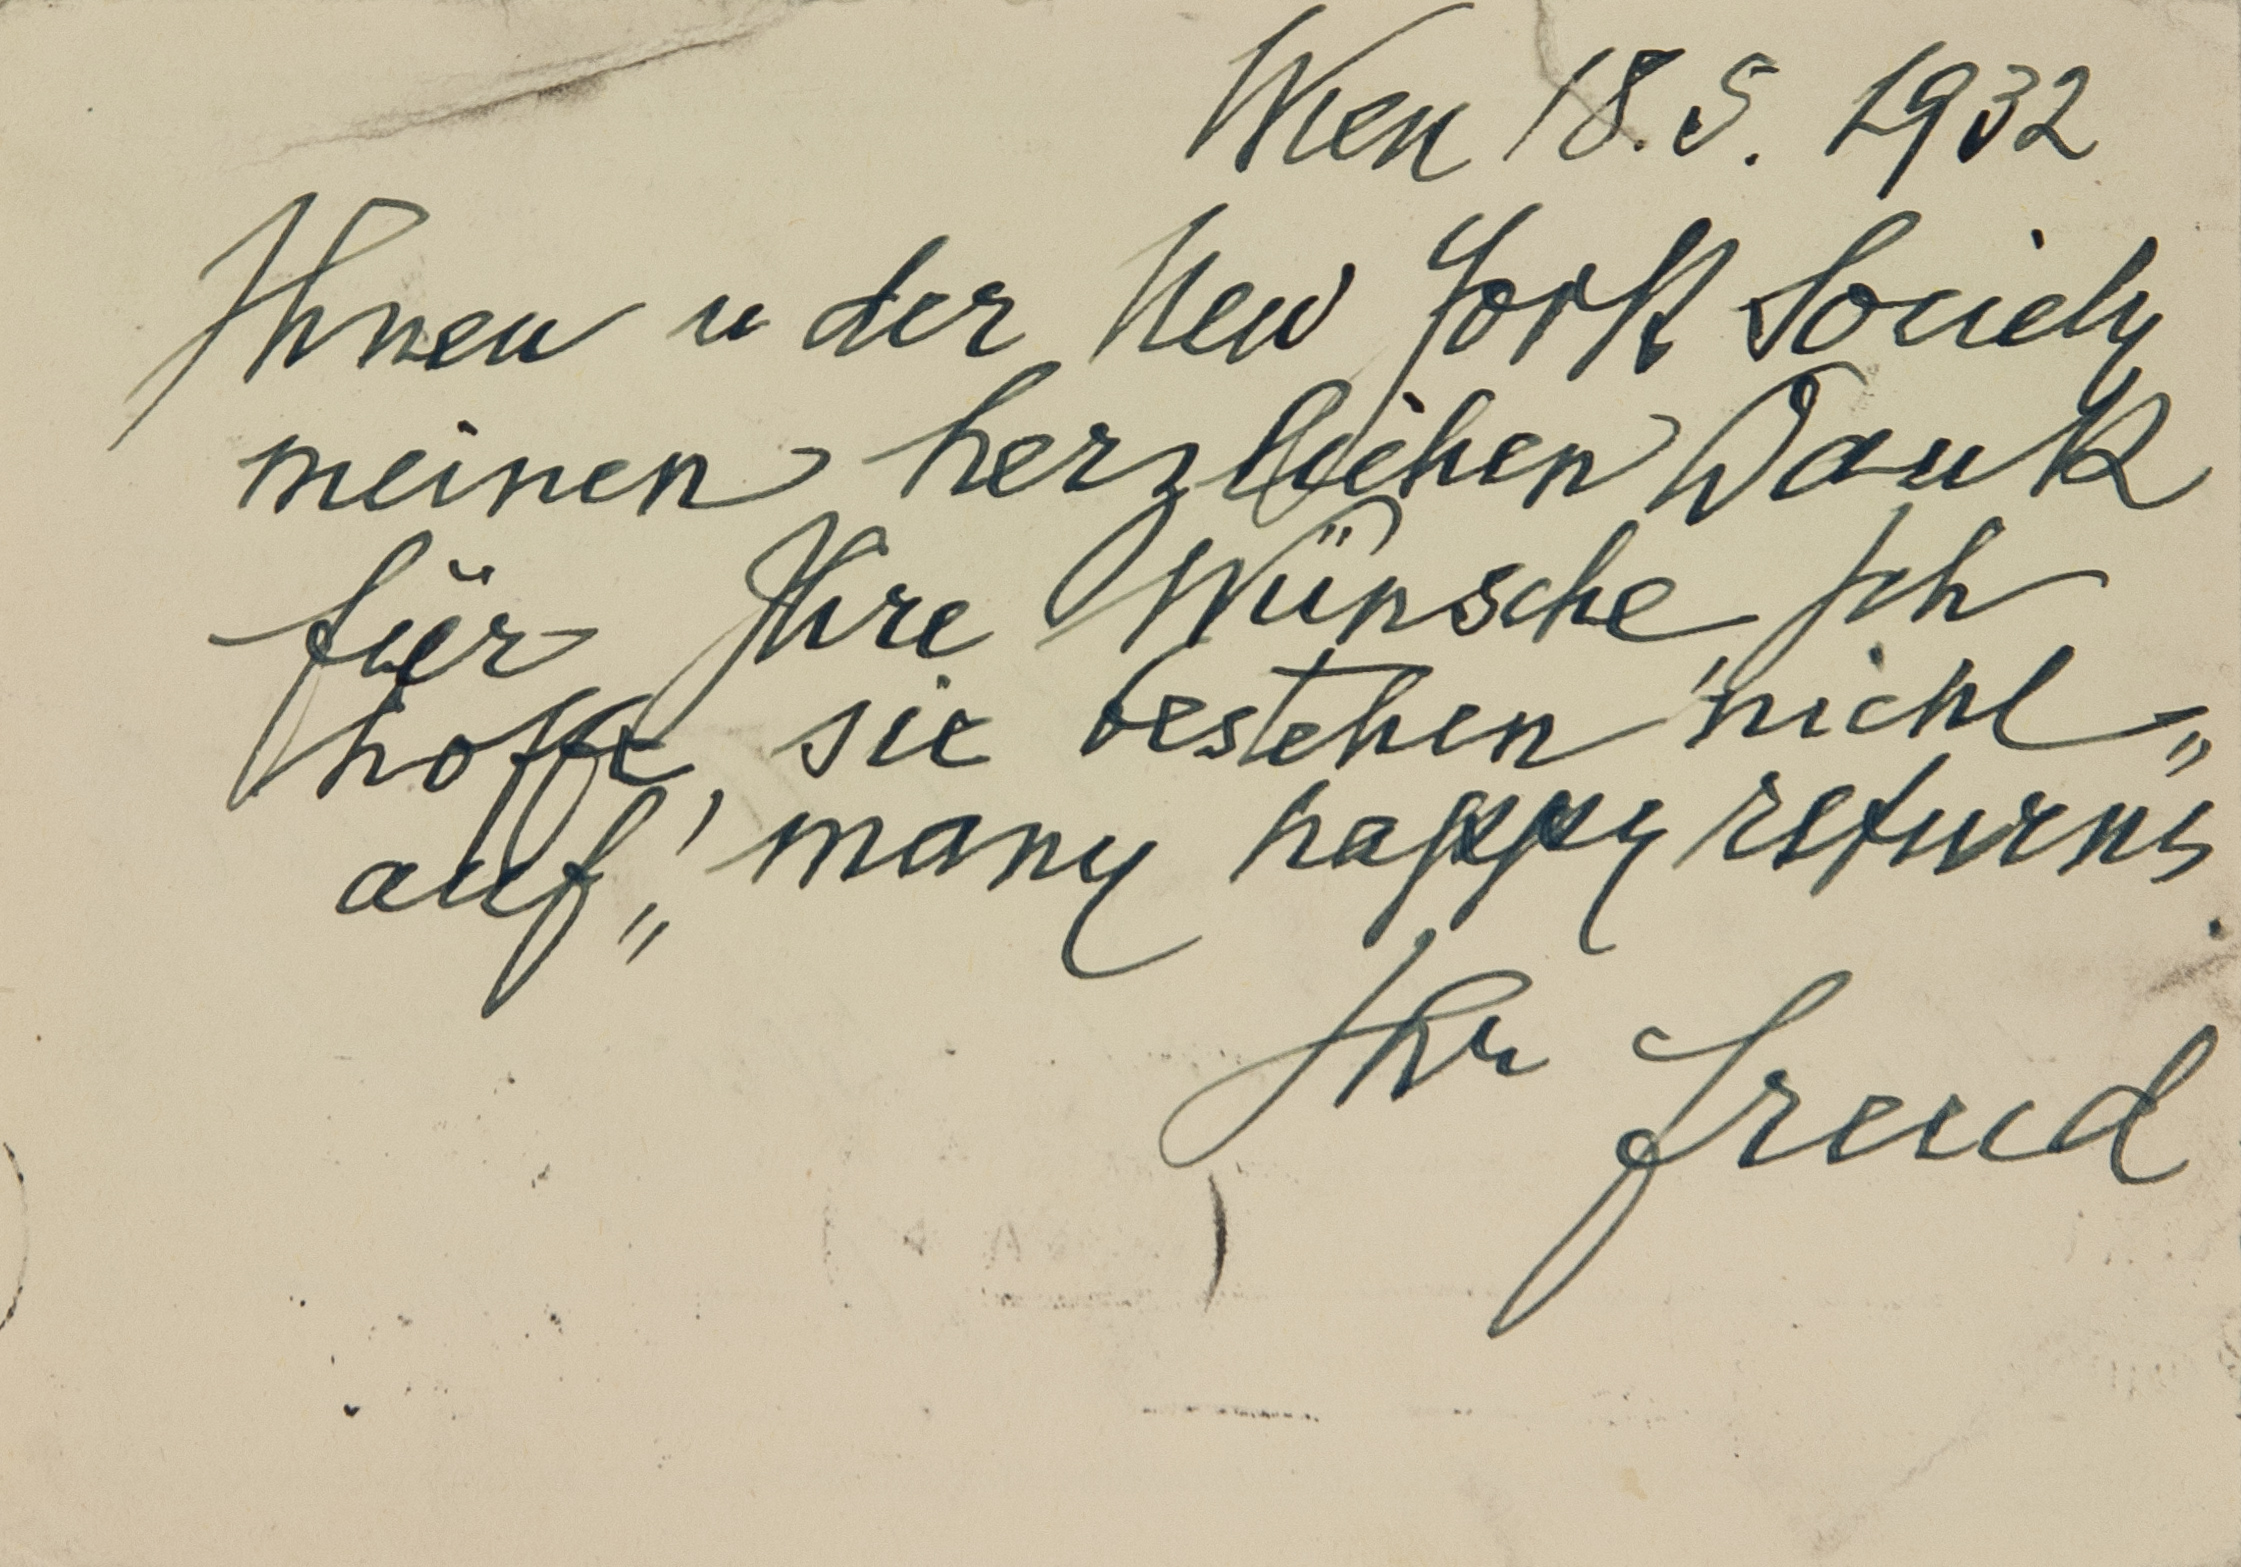 Wien 18.5. 1932
Ihnen u der New York Society
meinen herzlichen Dank
für Ihre Wünsche, Ich
hoffe, sie bestehen nicht „
auf „ many happy returns.
Ihr Freud